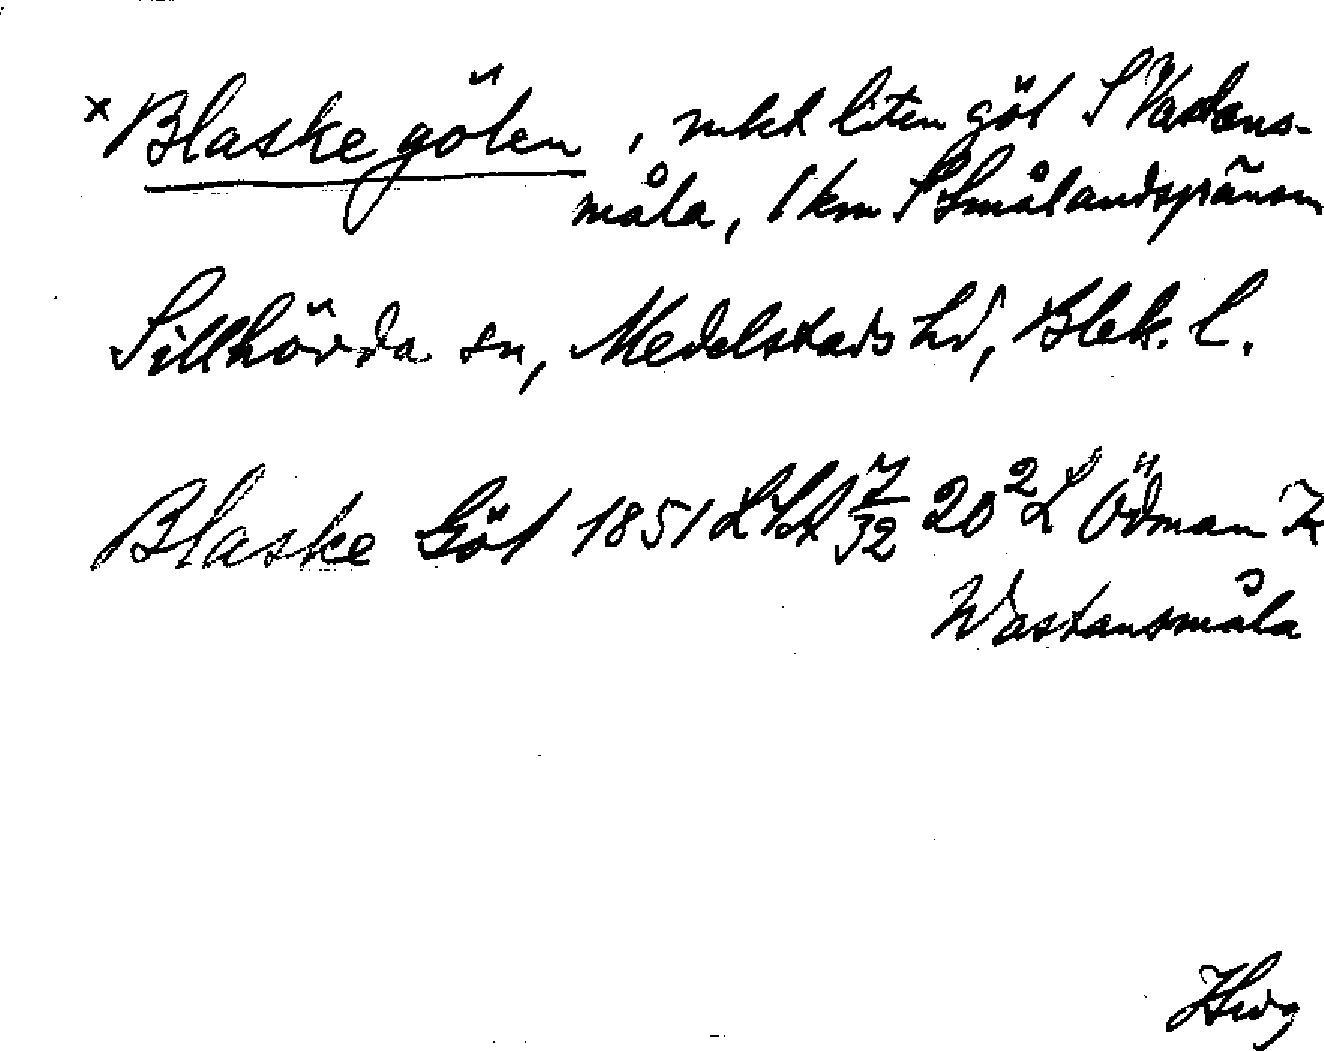 ×Blaske gölen, mkt liten göl S Västans-
måla, 1 km S Smålandsgränsen
Tillhörda sn, Medelstads hd, Blek. l.
Blaske Göl 1851 20² L Ödman K
Wastansmåla